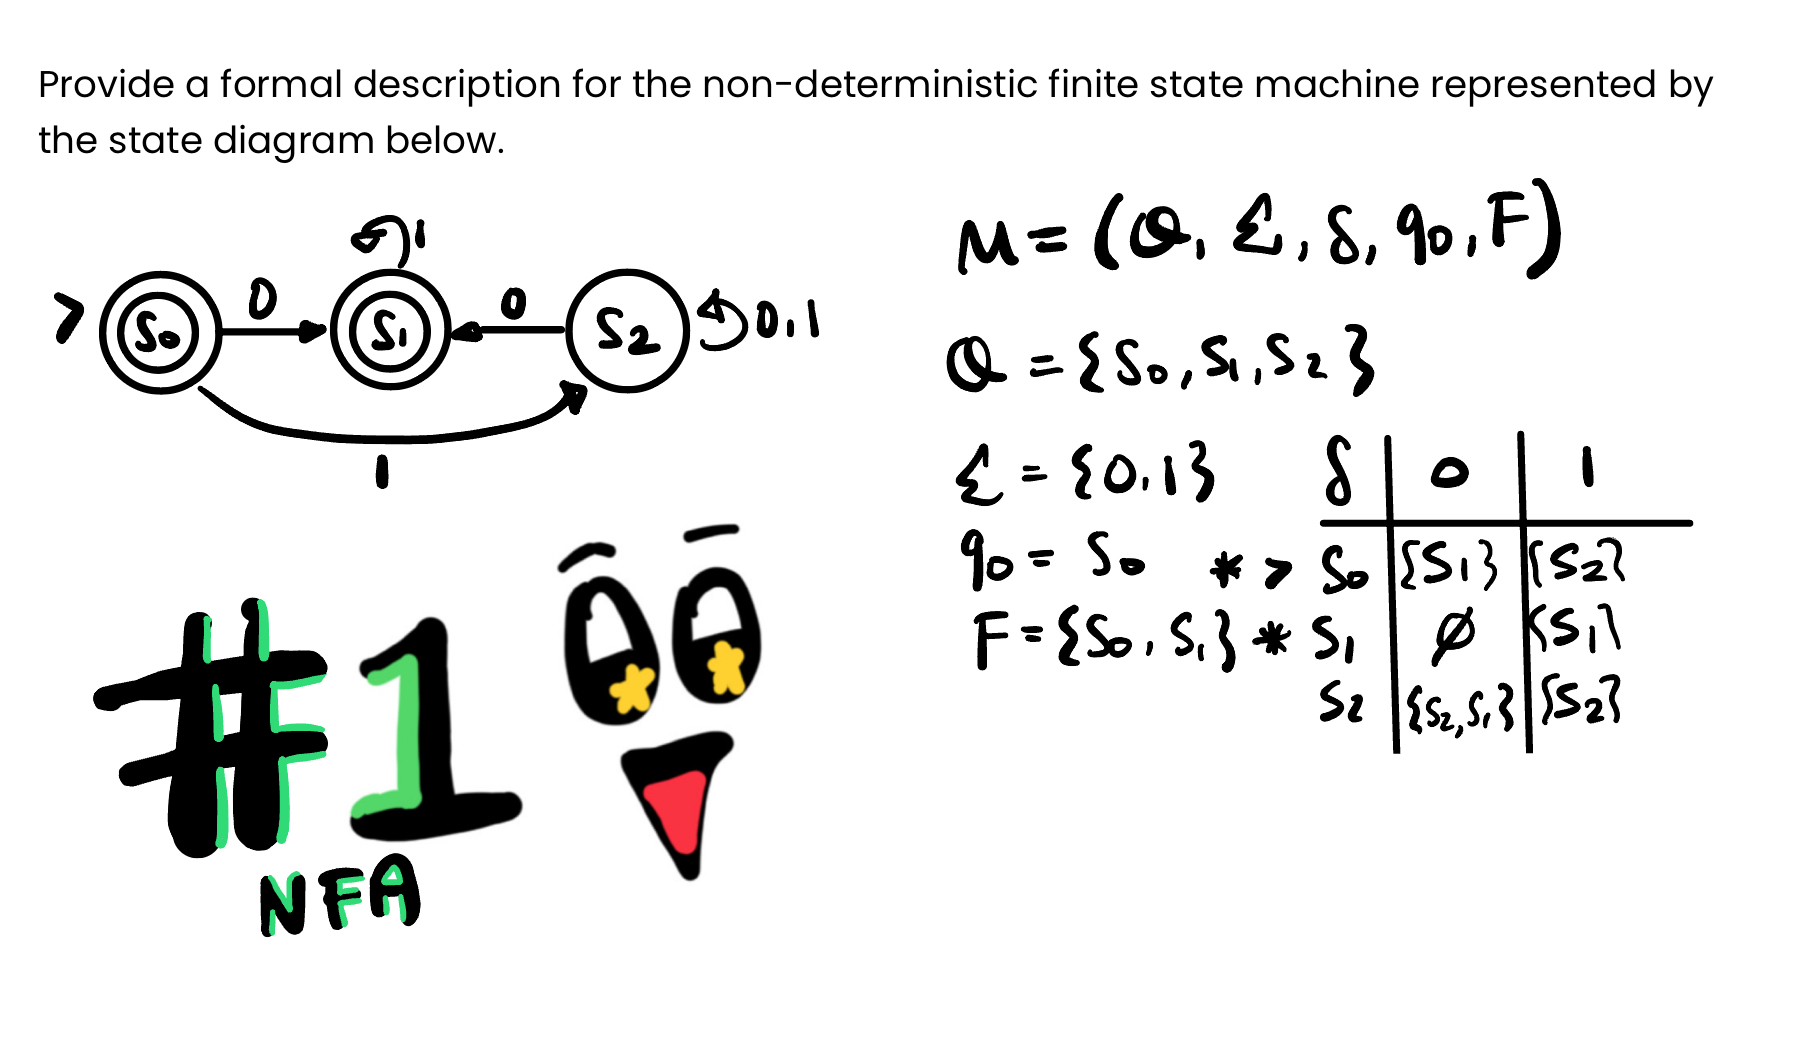 Provide a formal description for the non-deterministic finite state machine represented by
the state diagram below.
M = (Q, Σ, δ, q0, F)
1
> S0 0 S1 0 S2 0,1
1
Q = {S0, S1, S2}
Σ = {0,1}
q0 = S0
F = {S0, S1}
δ | 0 | 1
* > S0 | {S1} | {S2}
* S1 | ∅ | {S1}
S2 | {S2, S1} | {S2}
#1
NFA